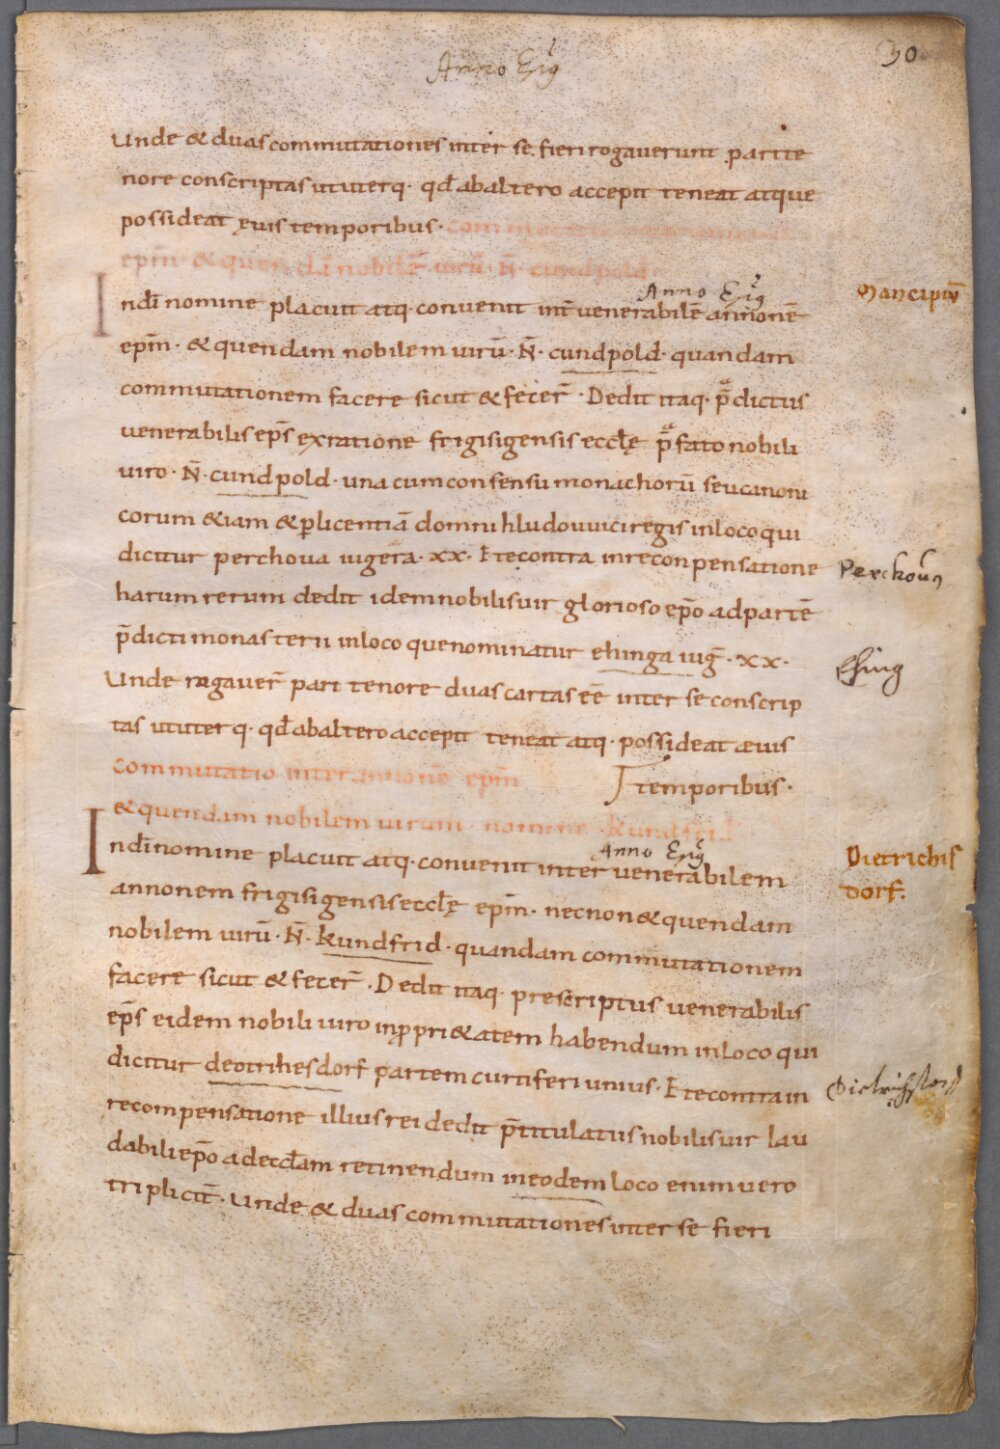 Anno Epūs
30
Unde & duas commutationes inter se fieri rogaverunt pari te
nore conscriptas ut uterq· qđ ab altero accepit teneat atque
possideat ęvis temporibus· com
epīm· & quendā nobilē virū· N̄· cundpold
Anno Epūs
Mancipiū
Indī nomine placuit atq· convenit int̄ venerabilē annonē
epīm· & quendam nobilem virū· N̄· cundpold· quandam
commutationem facere sicut & fecer̄· Dedit itaq· p̄dictus
venerabilis ep̄s ex ratione frigisigensis eccłę p̄fato nobili
viro· N̄· cundpold· una cum consensu monachorū seu canoni
corum &iam & p̱ licentiā domni hludouuici regis in loco qui
dicitur perchova iugera· xx· Et econtra in reconpensatione
Perchoua
harum rerum dedit idem nobilis vir glorioso ep̄o ad partē
p̄dicti monasterii in loco que nominatur ehinga iuḡ· xx·
Ehing
Unde rogaver̄ pari tenore duas cartas eē inter se conscrip
tas ut uterq· qđ ab altero accepit teneat atq· possideat ævis
temporibus·
commutatio inter annonē epīm
& quendam nobilem virum· nomine· kundfrid
Anno Epūs
Dietrichis
dorf.
Indī nomine placuit atq· convenit inter venerabilem
annonem frigisigensis eccłę epīm· necnon & quendam
nobilem virū· N̄· kundfrid· quandam commutationem
facere sicut & fecer̄· Dedit itaq· prescriptus venerabilis
ep̄s eidem nobili viro in ꝓpri&atem habendum in loco qui
dicitur deotrihesdorf partem curtiferi unius· Et econtra in
Dietrichstorf
recompensatione illius rei dedit p̄titulatus nobilis vir lau
dabili ep̄o ad eccłam retinendum in eodem loco enim vero
triplicit̄· Unde & duas commutationes inter se fieri